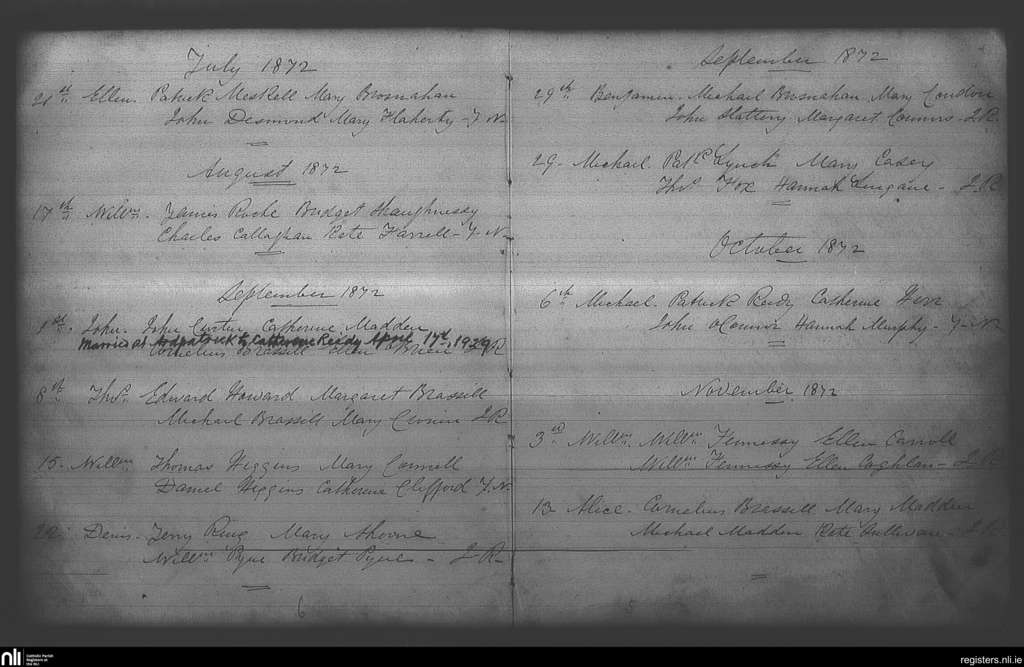 July 1872
21st. Ellen. Patrick Meskell Mary Brosnahan
John Desmond Mary Flaherty - J. N.
August 1872
17th Willm. James Roche Bridget Shaughnessy
Charles Callaghan Kate Farrell - J. N.
September 1872
1st. John. John Catherine Madden
Married at Ardpatrick to Catherine Ready April 17th, 1929
Cornelius Brassill Ellen O'Brien J. R
8th Thos. Edward Howard Margaret Brassill
Michael Brassill Mary J. R.
15. Willm Thomas Higgins Mary Connell
Daniel Higgins Catherine Clifford J. N.
22. Denis. Jerry Ring Mary
Willm Pyne Bridget Pyne - J. R.
6
September 1872
29th. Benjamin. Michael Brosnahan Mary Condon
John Slattery Margaret Connors - J. R.
29. Michael. Patk. Lynch Mary Casey
Thos. Fox Hannah - J. R
October 1872
6th Michael. Patrick Reidy Catherine
John O'Connor Hannah Murphy - J. N
November 1872
3rd Willm. Willm Fennessy Ellen Carroll
Willm Fennessy Ellen Coghlan - J. R
13 Alice. Cornelius Brassill Mary Madden
Michael Madden Kate Sullivan - J. R
5
nli
Catholic Parish
Registers at
the NLI
registers.nli.ie